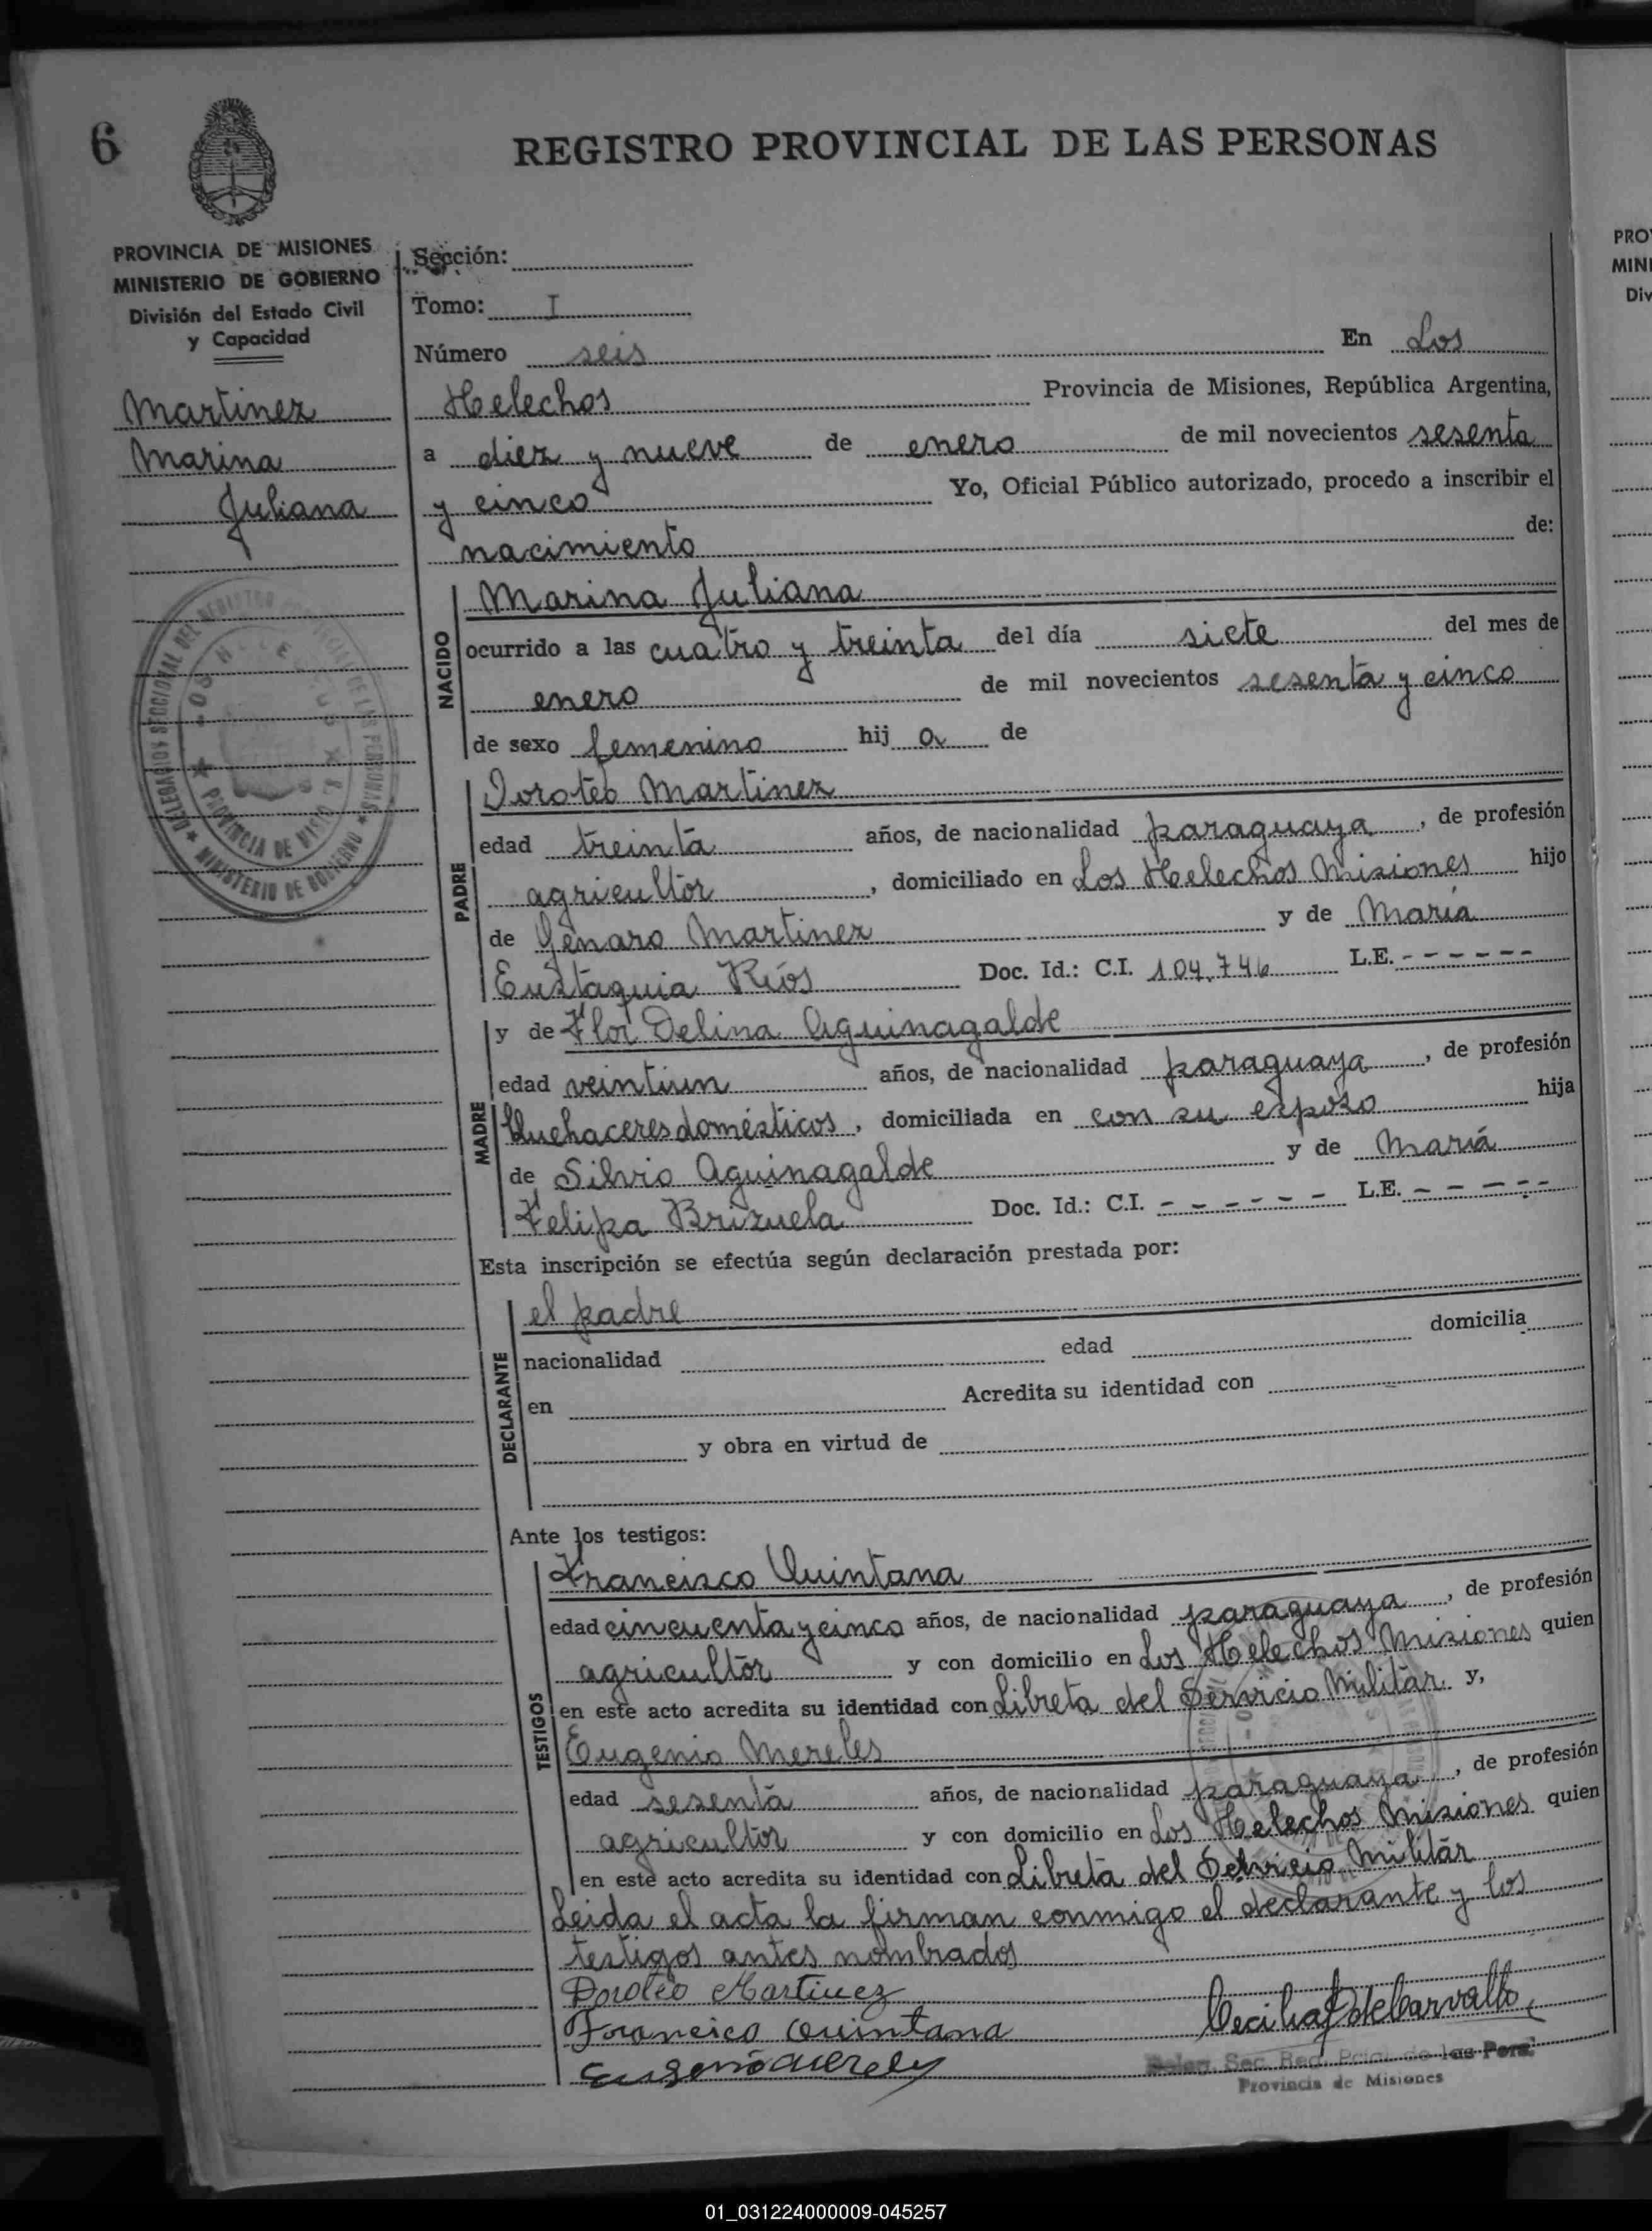 6
REGISTRO PROVINCIAL DE LAS PERSONAS
PROVINCIA DE MISIONES
MINISTERIO DE GOBIERNO
División del Estado Civil
y Capacidad
Martinez
Marina
Juliana
Sección:
Tomo: I
Número seis En Los
Helechos Provincia de Misiones, República Argentina,
a diez y nueve de enero de mil novecientos sesenta
y cinco Yo, Oficial Público autorizado, procedo a inscribir el
nacimiento de:
NACIDO
Marina Juliana
ocurrido a las cuatro y treinta del día siete del mes de
enero de mil novecientos sesenta y cinco
de sexo femenino hij a de
PADRE
Doroteo Martinez
edad treinta años, de nacionalidad paraguaya, de profesión
agricultor, domiciliado en Los Helechos Misiones hijo
de Génaro Martinez y de María
Eustaquia Ríos Doc. Id.: C.I. 104.746 L.E. - - - - - -
MADRE
y de Flor Delina Aguinagalde
edad veintiun años, de nacionalidad paraguaya, de profesión
Quehaceres domésticos, domiciliada en con su esposo hija
de Silvio Aguinagalde y de María
Felipa Brizuela Doc. Id.: C.I. - - - - - - L.E. - - - - - -
Esta inscripción se efectúa según declaración prestada por:
DECLARANTE
el padre
nacionalidad edad domicilia
en Acredita su identidad con
y obra en virtud de
Ante los testigos:
TESTIGOS
Francisco Quintana
edad cincuenta y cinco años, de nacionalidad paraguaya, de profesión
agricultor y con domicilio en Los Helechos Misiones quien
en este acto acredita su identidad con Libreta del Servicio Militar y,
Eugenio Mereles
edad sesenta años, de nacionalidad paraguaya, de profesión
agricultor y con domicilio en Los Helechos Misiones quien
en este acto acredita su identidad con Libreta del Servicio Militar
Leida el acta la firman conmigo el declarante y los
testigos antes nombrados
Doroteo Martinez
Francisco Quintana
Cecilia P de Carvallo
Deleg. Sec. Reg. Pcial. de las Pers.
Provincia de Misiones
DELEGACION SECCIONAL DEL REGISTRO PROVINCIAL DE LAS PERSONAS
LOS HELECHOS
PROVINCIA DE MISIONES
MINISTERIO DE GOBIERNO
PRO
MINI
Div
01_031224000009-045257